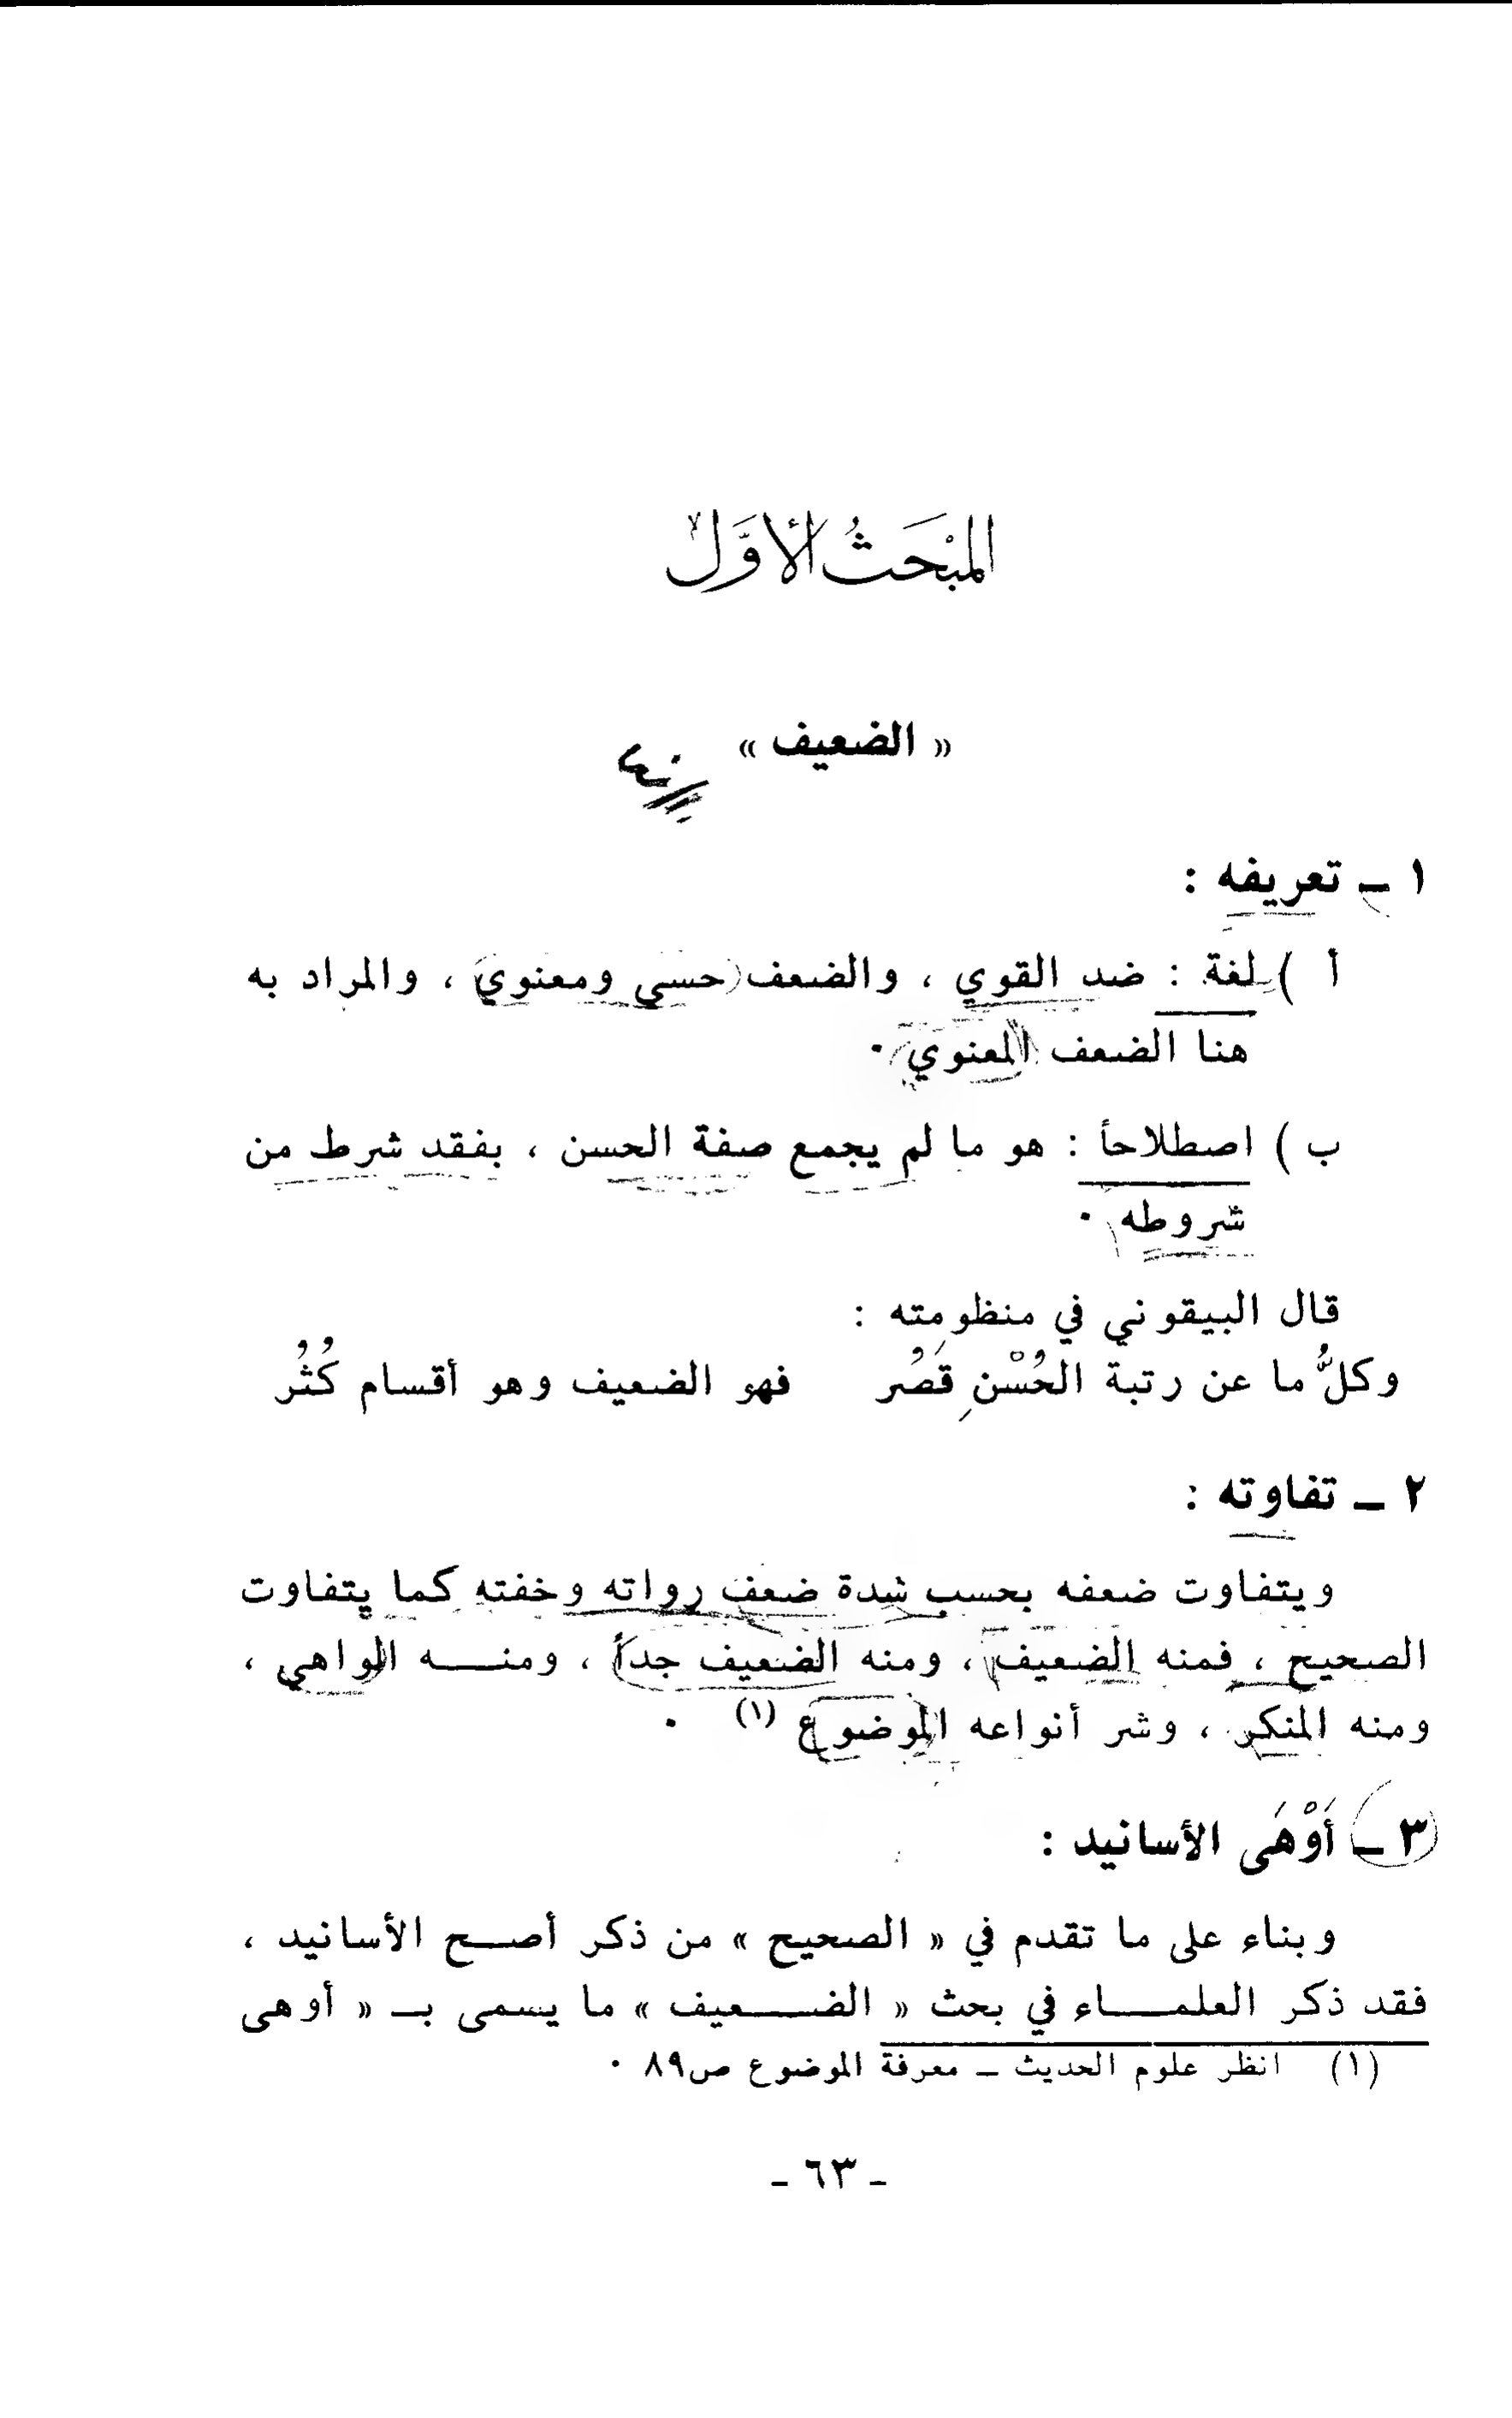 المبْحَثُ الأوَّل
« الضعيف »
١ ـ تعريفه :
أ ) لغة : ضد القوي ، والضعف حسي ومعنوي ، والمراد به
هنا الضعف المعنوي .
ب ) اصطلاحاً : هو ما لم يجمع صفة الحسن ، بفقد شرط من
شروطه .
قال البيقوني في منظومته :
وكلُّ ما عن رتبة الحُسْنِ قَصُر فهو الضعيف وهو أقسام كُثُر
٢ ـ تفاوته :
ويتفاوت ضعفه بحسب شدة ضعف رواته وخفته كما يتفاوت
الصحيح ، فمنه الضعيف ، ومنه الضعيف جداً ، ومنـــه الواهي ،
ومنه المنكر ، وشر أنواعه الموضوع (١) .
٣ ـ أَوْهَى الأسانيد :
وبناء على ما تقدم في « الصحيح » من ذكر أصـح الأسانيد ،
فقد ذكر العلمـــاء في بحث « الضـــعيف » ما يسمى بـ « أوهى
(١) انظر علوم الحديث ـ معرفة الموضوع ص٨٩ .
- ٦٣ -